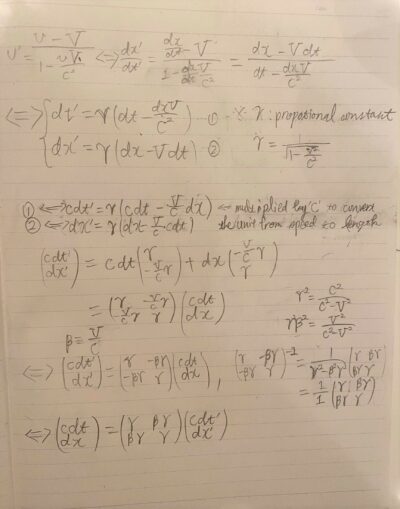 v' = (v - V)/(1 - vV/c²) <=> dx'/dt' = (dx/dt - V)/(1 - dx/dt V/c²) = (dx - Vdt)/(dt - dxV/c²)
<=> { dt' = γ(dt - dxV/c²) ① ※ γ: propational constant
dx' = γ(dx - Vdt) ② γ = 1/√(1 - V²/c²)
① <=> cdt' = γ(cdt - V/c dx) ← multiplied by 'c' to convert
② <=> dx' = γ(dx - V/c cdt) the unit from speed to length
(cdt' dx') = cdt(γ -V/c γ) + dx(-V/c γ γ)
= (γ -V/c γ -V/c γ γ)(cdt dx) γ² = c²/(c²-V²)
β = V/c γ²β² = V²/(c²-V²)
<=> (cdt' dx') = (γ -βγ -βγ γ)(cdt dx), (γ -βγ -βγ γ)⁻¹ = 1/(γ²-β²γ²) (γ βγ βγ γ)
= 1/1 (γ βγ βγ γ)
<=> (cdt dx) = (γ βγ βγ γ)(cdt' dx')